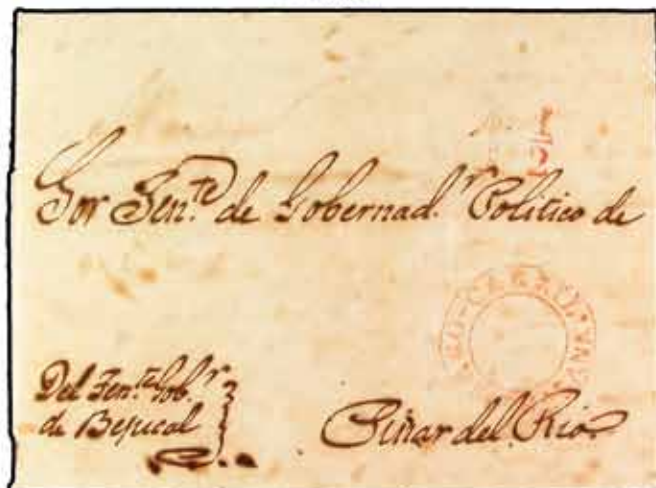 Sor Ten.te de Gobernad.r Politico de
Del Ten.te Gob.r
de Bejucal
Pinar del Rio